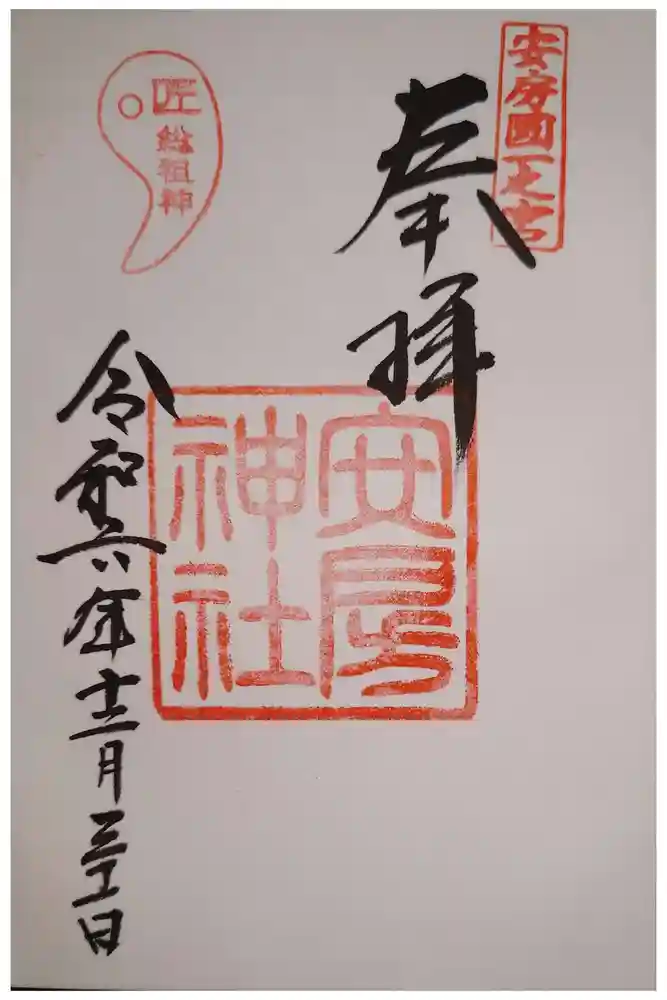 安房國一之宮
奉拝
安房
神社
匠
總祖神
令和六年十二月三十一日